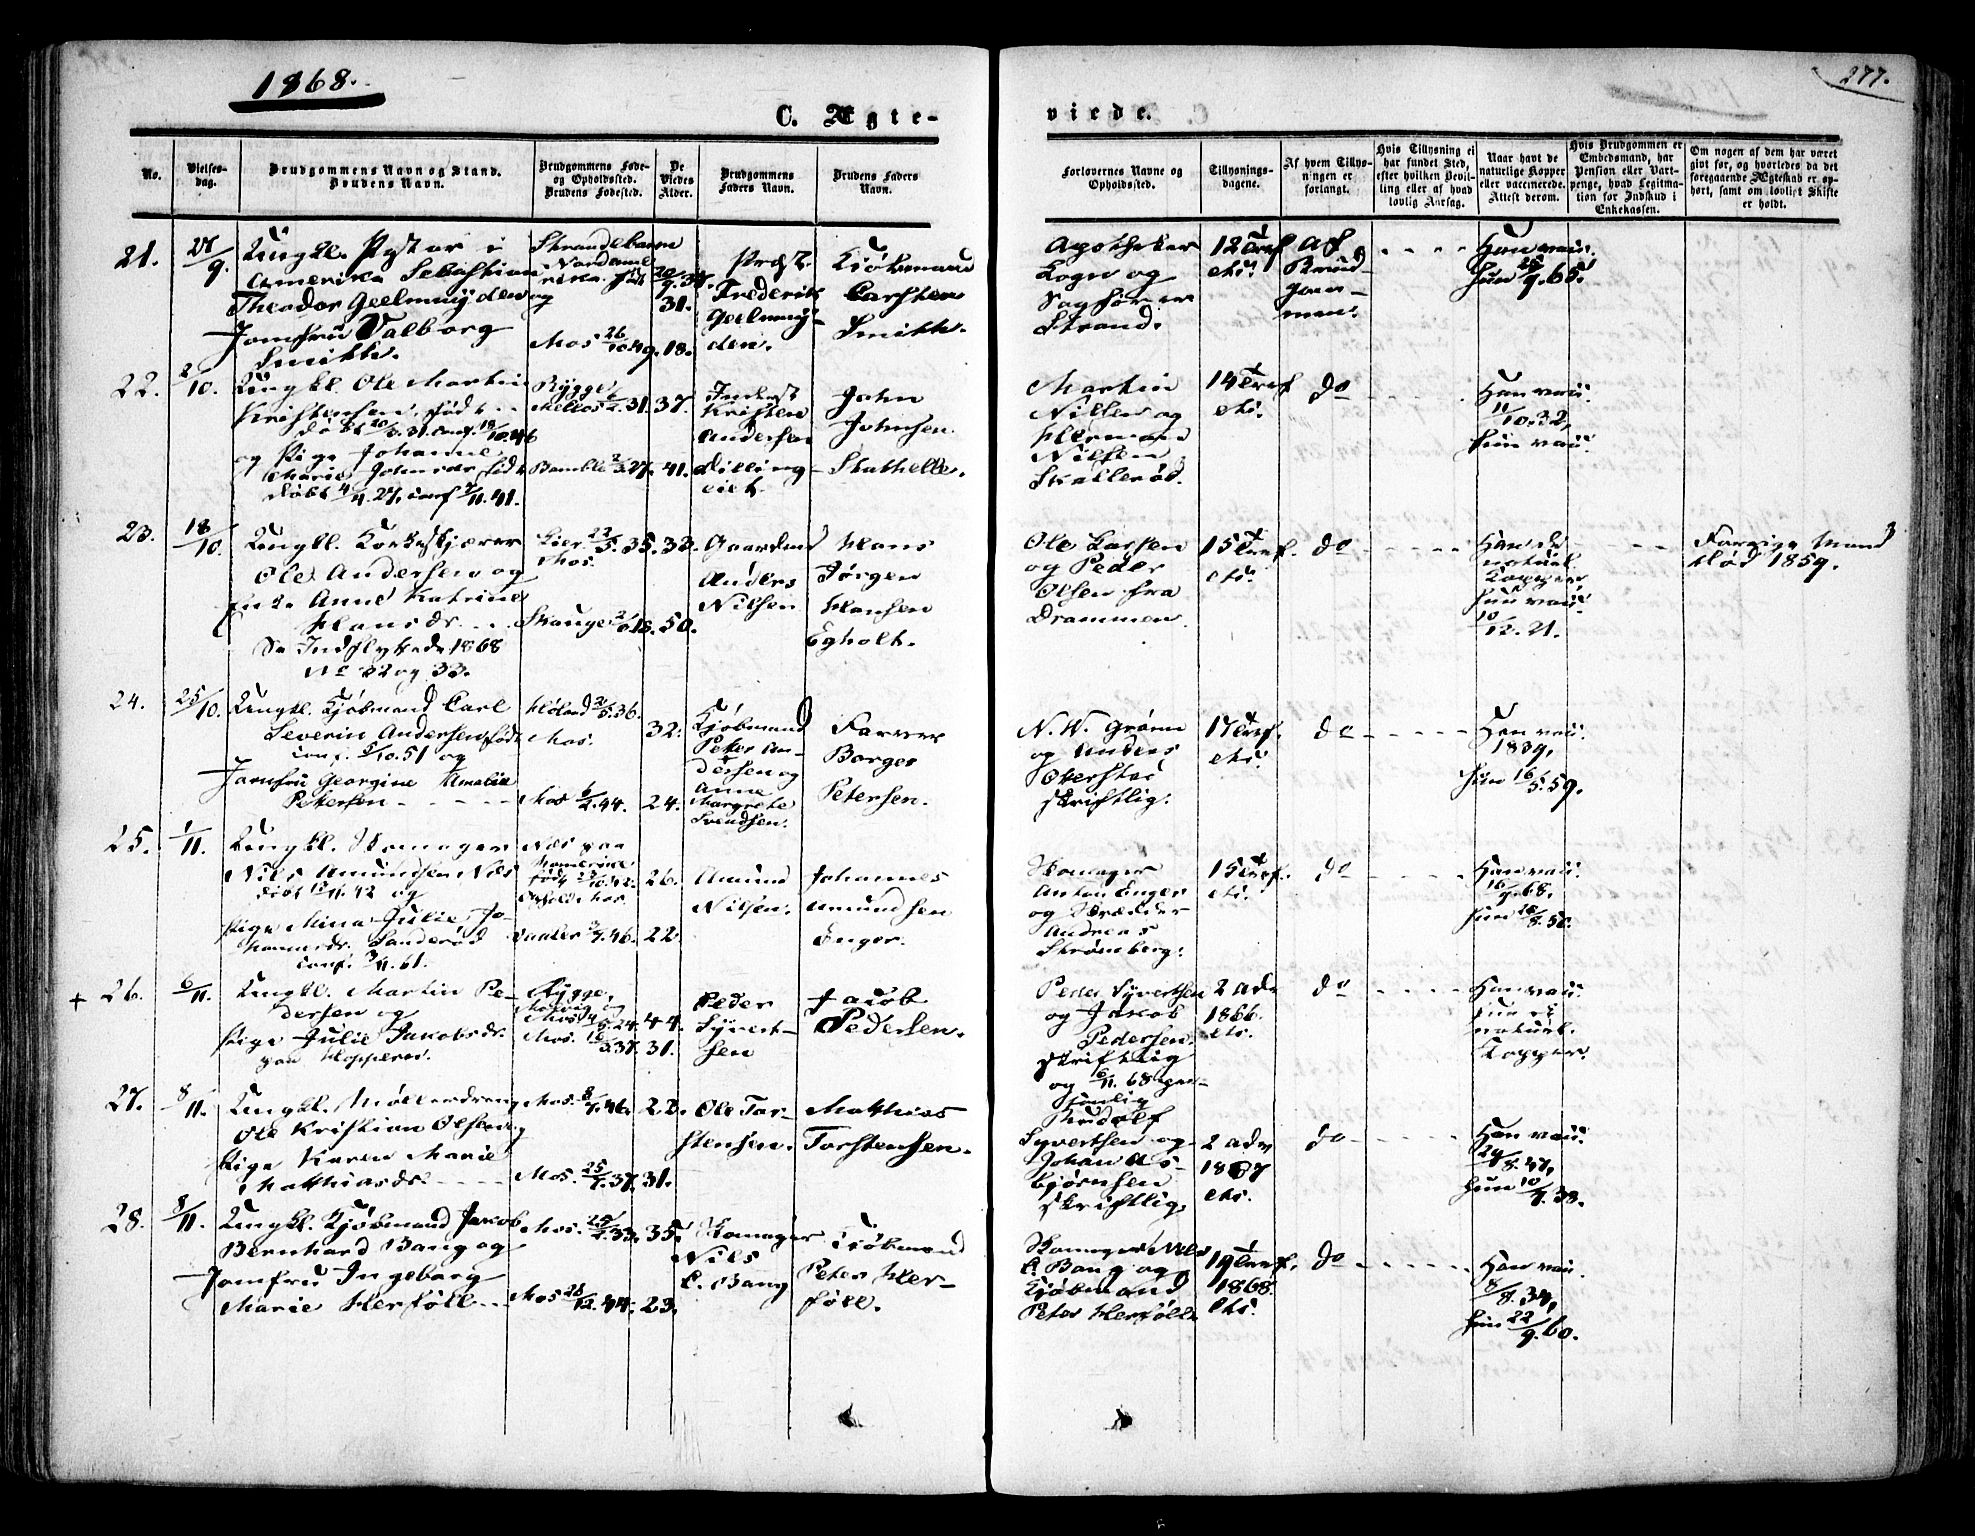 1868.
277.
C. Ægte-
viede.
No.
Vielses-
dag.
Brudgommens Navn og Stand.
Brudens Navn.
Brudgommens Føde-
og Opholdssted.
Brudens Fødested.
De
Viedes
Alder.
Brudgommens
Faders Navn.
Brudens Faders
Navn.
Forlovernes Navne og
Opholdssted.
Tillysnings-
dagene.
Af hvem Tillys-
ningen er
forlangt.
Hvis Tillysning ei
har fundet Sted,
efter hvilken Bevil-
ling eller af hvad
lovlig Aarsag.
Naar havt de
naturlige Kopper
eller vaccinerede.
Attest derom.
Hvis Brudgommen er
Embedsmand, har
Pension eller Vart-
penge, hvad Legitima-
tion for Indskud i
Enkekassen.
Om nogen af dem har været
gift før, og hvorledes da det
foregaaende Ægteskab er op-
hørt, samt om lovligt Skifte
er holdt.
21.
Ungkl. Pastor i
Amerika Sebastian
Theodor Geelmuyden og
Jomfru Valborg
Smith.
Strandebarm
Nordame
rika. født
Mos 26/10.49.
31.
18.
Præst
Frederik
Geelmuy-
den.
Kjøbmand
Carsten
Smith.
Apotheker
Logn og
Sagfører
Strand.
12 Tref
etc.
Af
Brud-
gom-
men.
Han vac.
Hun 9.65.
22.
2/10.
Ungkl. Ole Martin
Kristensen, født
og Pige Johanne
Marie Johnsdr. født
døbt 4/4.27, conf 7/11.41.
Rygge
Mellos 31.
Bamble 27.
37.
41.
Inderst
Kristen
Andersen
Dilling-
eiet.
John
Johnsen
Stathelle.
Martin
Nilsen og
Herman
Nilsen
Skallerød.
14 Tref
etc.
do
Han vac.
11/10.32,
Hun vac.
23.
18/10.
Ungkl. Korkskjærer
Ole Andersen og
Enke Anne Katrine
Hansdr.
Se Indflyttede 1868
No 32 og 33.
Lier 35.
Mos.
Skauger 18.
33.
50.
Gaardmd
Anders
Nilsen
Hans
Jørgen
Hansen
Egholt.
Ole Larsen
og Peder
Olsen fra
Drammen.
15 Tref.
etc.
do
Han de
naturl.
Kopper
Hun vac
10/12.21.
Forrige Mand
død 1859.
24.
25/10.
Ungkl. Kjøbmand Carl
Severin Andersen, født
conf. 5/10.51 og
Jomfru Georgine Amalie
Petersen
Høland 36.
Mos.
Mos 6/2.44.
32.
24.
Kjøbmand
Peter An-
dersen og
Anne
Margrete
Svendsen.
Farver
Borger
Petersen.
N. W. Grønn
og Anders
Oberstad
skriftlig.
17 Tref.
etc.
do
Han vac.
1839,
Hun 16/5.59.
25.
1/11.
Ungkl. Skomager
Nils Amundsen Næs
døbt 13/11.42 og
Pige Mina Julie Jo-
hannesdr. Sanderød
conf. 3/11.61.
Næs paa
Romerike
født 23/10.42.
Ophold Mos.
Vaaler 46.
26.
22.
Amund
Nilsen.
Johannes
Amundsen
Enger.
Skomager
Anton Enger
og Skrædder
Andreas
Strømberg.
15 Tref.
etc.
do
Han vac.
16/9.68.
26.
6/11.
Ungkl. Martin Pe-
dersen og
Pige Julie Jakobsdr.
paa Hopperen.
Rygge,
Mos 24.
Mos. 37.
44.
31.
Peder
Syvert-
sen
Jacob
Pedersen.
Peder Syvertsen
og Jakob
Pedersen.
skriftlig
og 6/11.68 per-
sonlig
2 adv
1866.
etc.
do
Han vac.
Hun de
naturl.
Kopper.
27.
8/11.
Ungkl. Møllerdreng
Ole Kristian Olsen og
Pige Karen Marie
Matthiasdr.
Mos. 46.
Mos. 25/7.37.
22.
31.
Ole Tor-
stensen.
Matthias
Torstensen.
Rudolf
Syvertsen og
Johan As-
bjørnsen
skriftlig
2 adv
1867
etc.
do
Han vac.
29/8.47,
Hun 38.
28.
8/11.
Ungkl. Kjøbmand Jakob
Bernhard Bang og
Jomfru Ingeborg
Marie Herføll
Mos. 33.
Mos 44.
35.
23.
Skomager
Nils
C. Bang
Kjøbmand
Peter Her-
føll.
Skomager Nils
C. Bang og
Kjøbmand
Peter Herføll
19 Tref.
1868.
etc.
do
Han vac.
8/8.34,
Hun 22/9.60.